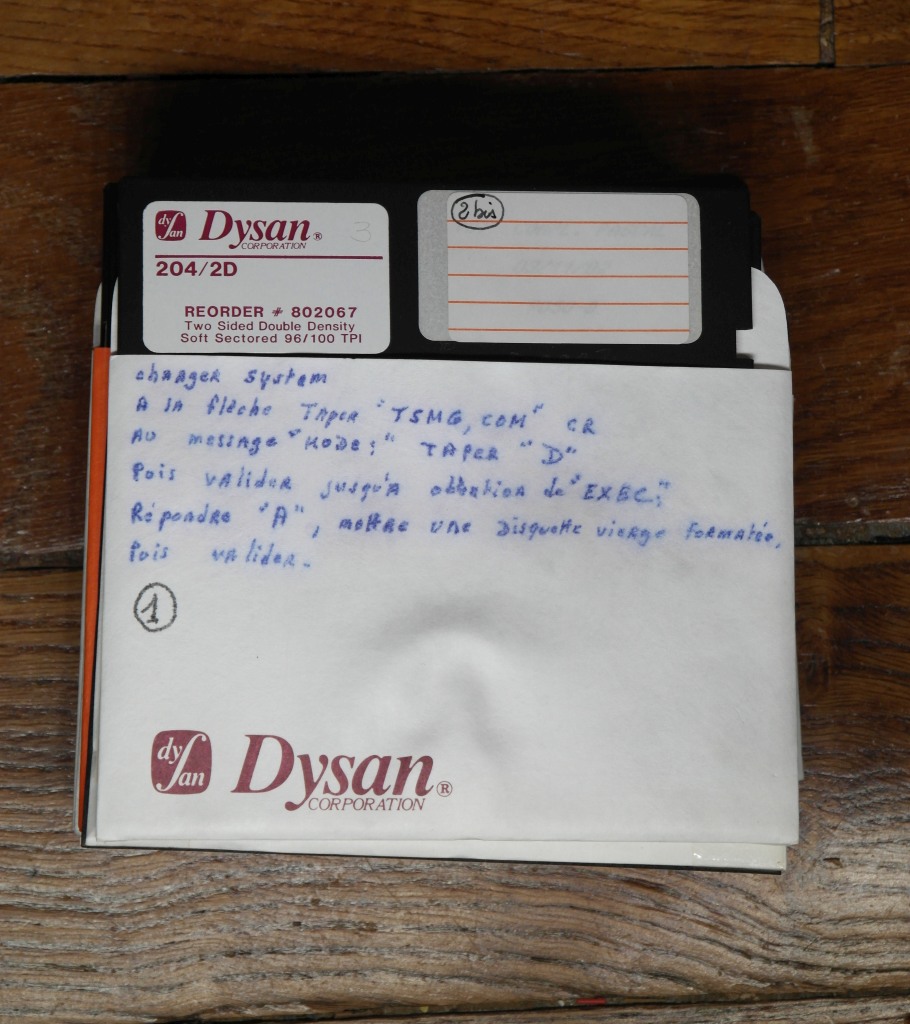 dy
san
Dysan®
CORPORATION
3
204/2D
REORDER # 802067
Two Sided Double Density
Soft Sectored 96/100 TPI
2 bis
charger system
A la flèche Taper "TSMG,COM" CR
AU message "MODE:" TAPER "D"
Puis valider jusqu'A obtention de "EXEC:"
Répondre "A", mettre une Disquette vierge formatée,
Puis valider.
1
dy
san
Dysan®
CORPORATION